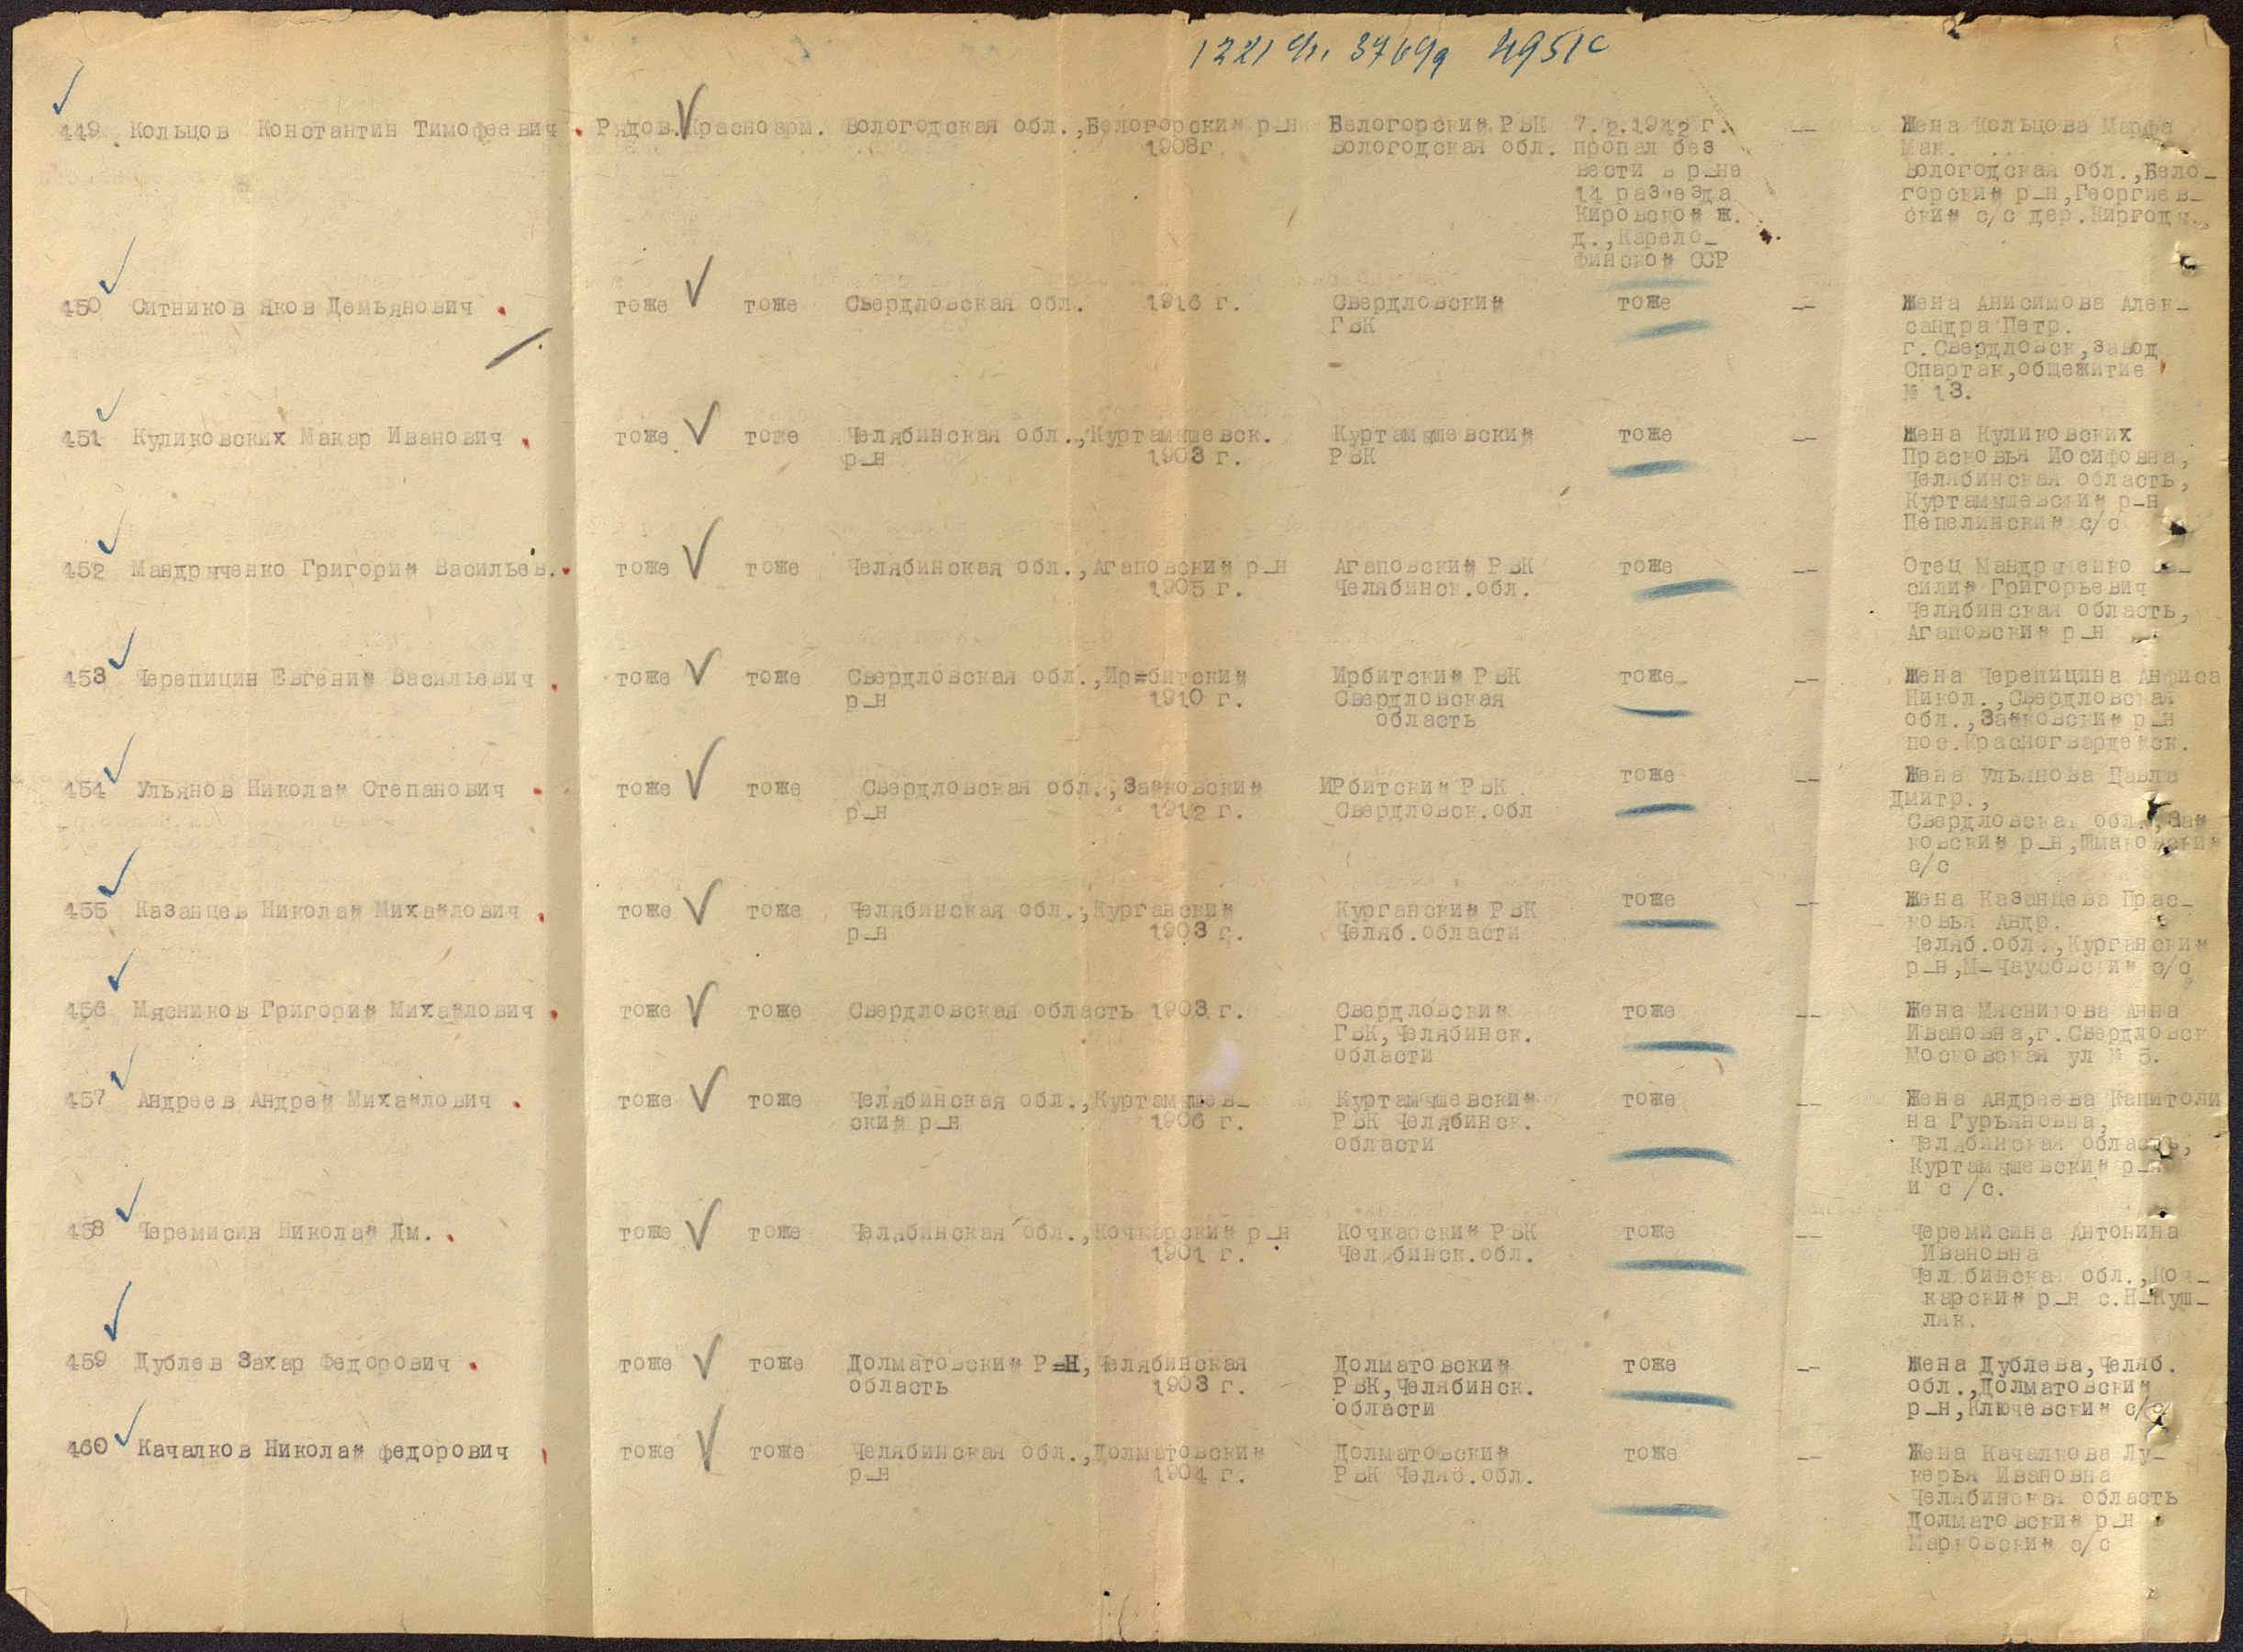 449 Кольцов Константин Тимофеевич Рядов. Красноарм. Вологодская обл., Белогорский р-н Белогорский РВК 7.2.1942 г. -- Жена Кольцова Марфа
1908г. Вологодская обл. пропал без Мак.
вести в р-не Вологодская обл., Бело-
14 раз"езда горский р-н, Георгиев-
Кировской ж. ский с/с дер.
д., Карело-
Финской ССР
450 Ситников Яков Демьянович тоже тоже Свердловская обл. 1916 г. Свердловский тоже -- Жена Анисимова Алек-
ГВК сандра Петр.
г. Свердловск, завод
Спартак, общежитие
№ 13.
451 Куликовских Макар Иванович тоже тоже Челябинская обл., Куртамышевск. Куртамышевский тоже -- Жена Куликовских
р-н 1903 г. РВК Прасковья Иосифовна,
Челябинская область,
Куртамышевский р-н
Пепелинский с/с
452 Мандрыченко Григорий Васильев. тоже тоже Челябинская обл., Агаповский р-н Агаповский РВК тоже -- Отец
1905 г. Челябинск. обл. силий Григорьевич
Челябинская область,
Агаповский р-н
453 Черепицин Евгений Васильевич тоже тоже Свердловская обл., Ирбитский Ирбитский РВК тоже -- Жена Черепицина Анфиса
р-н 1910 г. Свердловская Никол., Свердловская
область обл., Зайковский р-н
пос. Красногвардейск.
454 Ульянов Николай Степанович тоже тоже Свердловская обл., Зайковский ИРбитский РВК тоже -- Жена Ульянова Павла
р-н 1912 г. Свердловск. обл Дмитр.,
Свердловская обл., Зай
ковский р-н, Шмаковский
с/с
455 Казанцев Николай Михайлович тоже тоже Челябинская обл., Курганский Курганский РВК тоже -- Жена Казанцева Прас-
р-н 1903 г. Челяб. области ковья Андр.
Челяб. обл., Курганский
р-н, М-Чаусовский с/с
456 Мясников Григорий Михайлович тоже тоже Свердловская область 1903 г. Свердловский тоже -- Жена Мясникова Анна
ГВК, Челябинск. Ивановна, г. Свердловск
области Московская ул № 5.
457 Андреев Андрей Михайлович тоже тоже Челябинская обл., Куртамышев- Куртамышевский тоже -- Жена Андреева Капитоли
ский р-н 1906 г. РВК Челябинск. на Гурьяновна,
области Челябинская область,
Куртамышевский р-н
и с/с.
458 Черемисин Николай Дм. тоже тоже Челябинская обл., Кочкарский р-н Кочкарский РВК тоже -- Черемисина Антонина
1901 г. Челябинск. обл. Ивановна
Челябинская обл., Коч-
карский р-н с. Н-Куш-
ляк.
459 Дублев Захар Федорович тоже тоже Долматовский Р-Н, Челябинская Долматовский тоже -- Жена Дублева, Челяб.
область 1903 г. РВК, Челябинск. обл., Долматовский
области р-н, Ключевский с/с
460 Качалков Николай федорович тоже тоже Челябинская обл., Долматовский Долматовский тоже -- Жена Качалкова Лу-
р-н 1904 г. РВК Челяб. обл. керья Ивановна
Челябинская область
Долматовский р-н
Марковский с/с